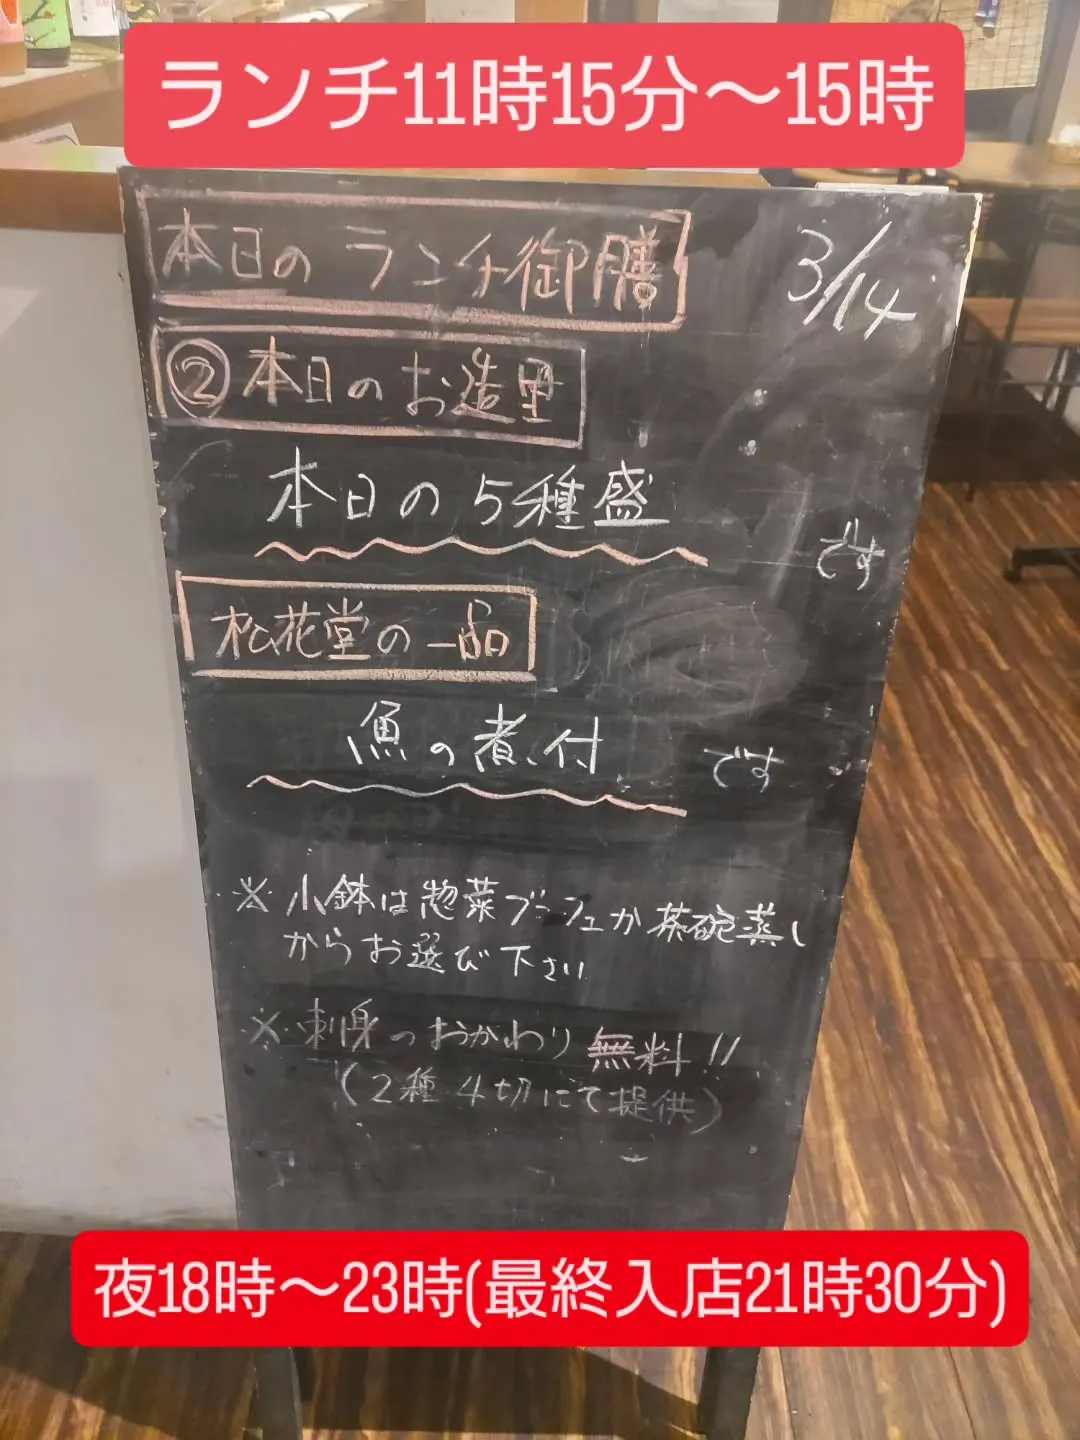 ランチ11時15分〜15時
本日のランチ御膳
3/14
②本日のお造里
本日の5種盛
です
松花堂の一品
魚の煮付
です
※小鉢は惣菜ブッフェか茶碗蒸し
からお選び下さい
※刺身のおかわり無料!!
(2種4切にて提供)
夜18時〜23時(最終入店21時30分)